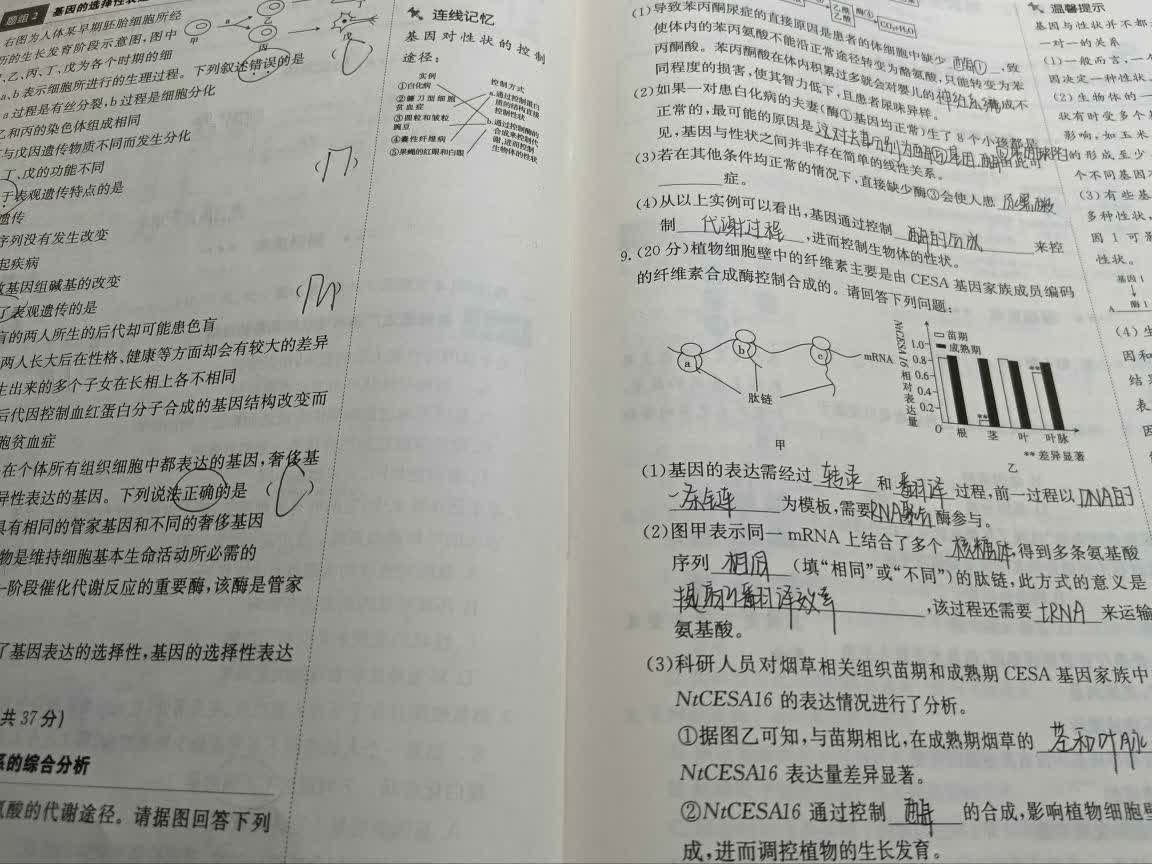 题组2 基因的选择性表达
右图为人体某早期胚胎细胞所经
历的生长发育阶段示意图,图中
甲、乙、丙、丁、戊为各个时期的细
a、b表示细胞所进行的生理过程。下列叙述错误的是
a过程是有丝分裂,b过程是细胞分化
乙和丙的染色体组成相同
丁与戊因遗传物质不同而发生分化
丁、戊的功能不同
于表观遗传特点的是
遗传
序列没有发生改变
起疾病
基因组碱基的改变
了表观遗传的是
盲的两人所生的后代却可能患色盲
两人长大后在性格、健康等方面却会有较大的差异
生出来的多个子女在长相上各不相同
后代因控制血红蛋白分子合成的基因结构改变而
胞贫血症
在个体所有组织细胞中都表达的基因,奢侈基
异性表达的基因。下列说法正确的是
具有相同的管家基因和不同的奢侈基因
物是维持细胞基本生命活动所必需的
一阶段催化代谢反应的重要酶,该酶是管家
了基因表达的选择性,基因的选择性表达
共37分)
系的综合分析
氨酸的代谢途径。请据图回答下列
甲
a
乙
丙
b
丁
戊
连线记忆
基因对性状的控制
途径:
实例
控制方式
①白化病
②镰刀型细胞
贫血症
③圆粒和皱粒
豌豆
④囊性纤维病
⑤果蝇的红眼和白眼
a.通过控制蛋白
质的结构直接
控制性状
b.通过控制酶的
合成来控制代
谢,进而控制
生物体的性状
乙酰
乙酸
CO₂+H₂O
(1)导致苯丙酮尿症的直接原因是患者的体细胞中缺少 酶① ,致
使体内的苯丙氨酸不能沿正常途径转变为酪氨酸,只能转变为苯
丙酮酸。苯丙酮酸在体内积累过多就会对婴儿的 神经系统 造成不
同程度的损害,使其智力低下,且患者尿味异样。
(2)如果一对患白化病的夫妻(酶①基因均正常)生了8个小孩都是
正常的,最可能的原因是
。由此可
见,基因与性状之间并非存在简单的线性关系。
(3)若在其他条件均正常的情况下,直接缺少酶③会使人患
症。
(4)从以上实例可以看出,基因通过控制 酶的合成 来控
制 代谢过程 ,进而控制生物体的性状。
9.(20分)植物细胞壁中的纤维素主要是由CESA基因家族成员编码
的纤维素合成酶控制合成的。请回答下列问题:
a
b
c
mRNA
肽链
甲
NtCESA16相对表达量
苗期
成熟期
1.0
0.8
0.6
0.4
0.2
0
**
**
根 茎 叶 叶脉
**差异显著
乙
(1)基因的表达需经过 转录 和 翻译 过程,前一过程以 DNA的
一条链 为模板,需要 RNA聚合 酶参与。
(2)图甲表示同一mRNA上结合了多个 核糖体 ,得到多条氨基酸
序列 相同 (填“相同”或“不同”)的肽链,此方式的意义是
提高了翻译效率 ,该过程还需要 tRNA 来运输
氨基酸。
(3)科研人员对烟草相关组织苗期和成熟期CESA基因家族中
NtCESA16的表达情况进行了分析。
①据图乙可知,与苗期相比,在成熟期烟草的 茎和叶脉
NtCESA16表达量差异显著。
②NtCESA16通过控制 酶 的合成,影响植物细胞壁
成,进而调控植物的生长发育。
温馨提示
基因与性状并不都
一对一的关系
(1)一般而言,一个
因决定一种性状。
(2)生物体的一
状有时受多个基
影响,如玉米
的形成至少
个不同基因
(3)有些基
多种性状,
因1可影
性状。
基因1
酶1
A
(4)生
因和
结果
表
因